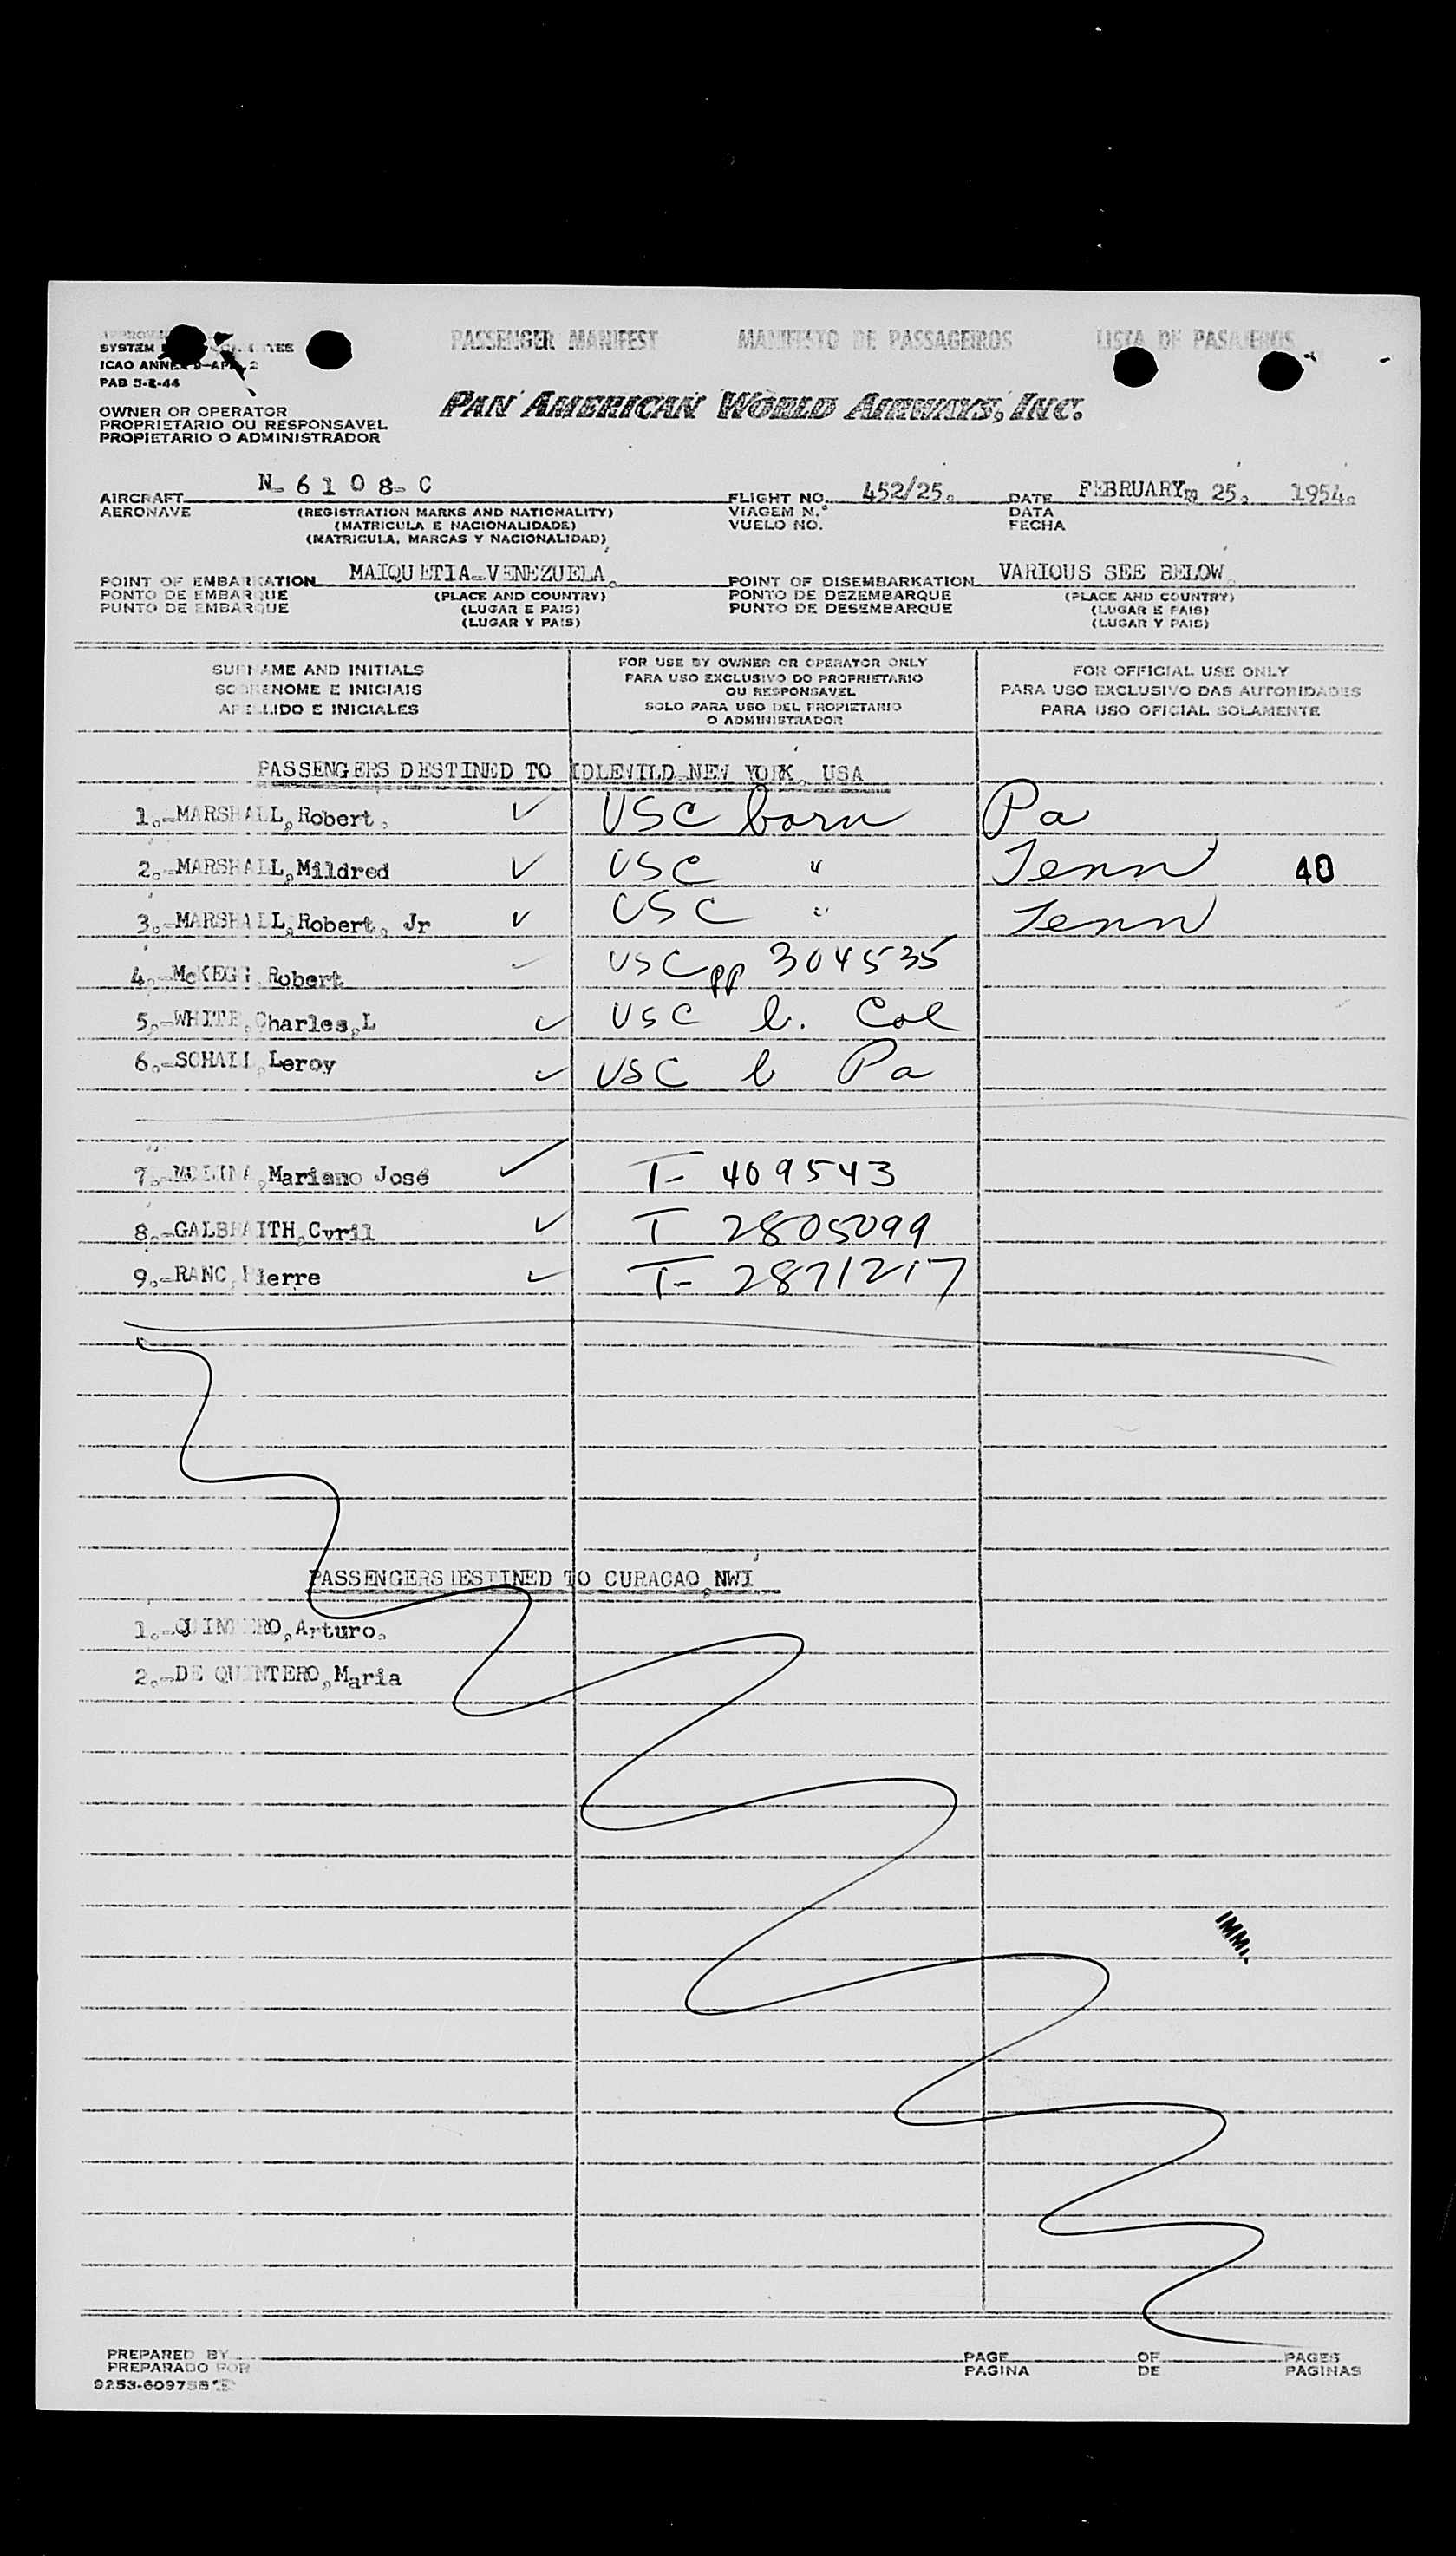 PASSENGER MANIFEST MANIFESTO DE PASSAGEIROS LISTA DE PASAJEROS
SYSTEM
ICAO ANNEX 9-APP. 2
PAB 5-2-44
OWNER OR OPERATOR
PROPRIETARIO OU RESPONSAVEL
PROPIETARIO O ADMINISTRADOR
PAN AMERICAN WORLD AIRWAYS, INC.
AIRCRAFT N-6108-C FLIGHT NO. 452/25. DATE FEBRUARY, 25. 1954.
AERONAVE (REGISTRATION MARKS AND NATIONALITY) VIAGEM N.º DATA
(MATRICULA E NACIONALIDADE) VUELO NO. FECHA
(MATRICULA, MARCAS Y NACIONALIDAD)
POINT OF EMBARKATION MAIQUETIA-VENEZUELA. POINT OF DISEMBARKATION VARIOUS SEE BELOW.
PONTO DE EMBARQUE (PLACE AND COUNTRY) PONTO DE DEZEMBARQUE (PLACE AND COUNTRY)
PUNTO DE EMBARQUE (LUGAR E PAIS) PUNTO DE DESEMBARQUE (LUGAR E PAIS)
(LUGAR Y PAIS) (LUGAR Y PAIS)
SURNAME AND INITIALS
SOBRENOME E INICIAIS
APELLIDO E INICIALES
FOR USE BY OWNER OR OPERATOR ONLY
PARA USO EXCLUSIVO DO PROPRIETARIO
OU RESPONSAVEL
SOLO PARA USO DEL PROPIETARIO
O ADMINISTRADOR
FOR OFFICIAL USE ONLY
PARA USO EXCLUSIVO DAS AUTORIDADES
PARA USO OFICIAL SOLAMENTE
PASSENGERS DESTINED TO IDLEWILD NEW YORK, USA
1.-MARSHALL, Robert. ✓ USC born Pa
2.-MARSHALL, Mildred ✓ USC " Tenn 40
3.-MARSHALL, Robert, Jr ✓ USC " Tenn
4.-McKEGG, Robert ✓ USC pp 304535
5.-WHITE, Charles, L ✓ USC b. Col
6.-SCHALL, Leroy ✓ USC b Pa
7.-MOLINA, Mariano José ✓ T- 409543
8.-GALBRAITH, Cyril ✓ T 2805099
9.-RANC, Pierre ✓ T- 2871217
PASSENGERS DESTINED TO CURACAO, NWI
1.-QUINTERO, Arturo.
2.-DE QUINTERO, Maria
IMMI.
PREPARED BY PAGE OF PAGES
PREPARADO POR PAGINA DE PAGINAS